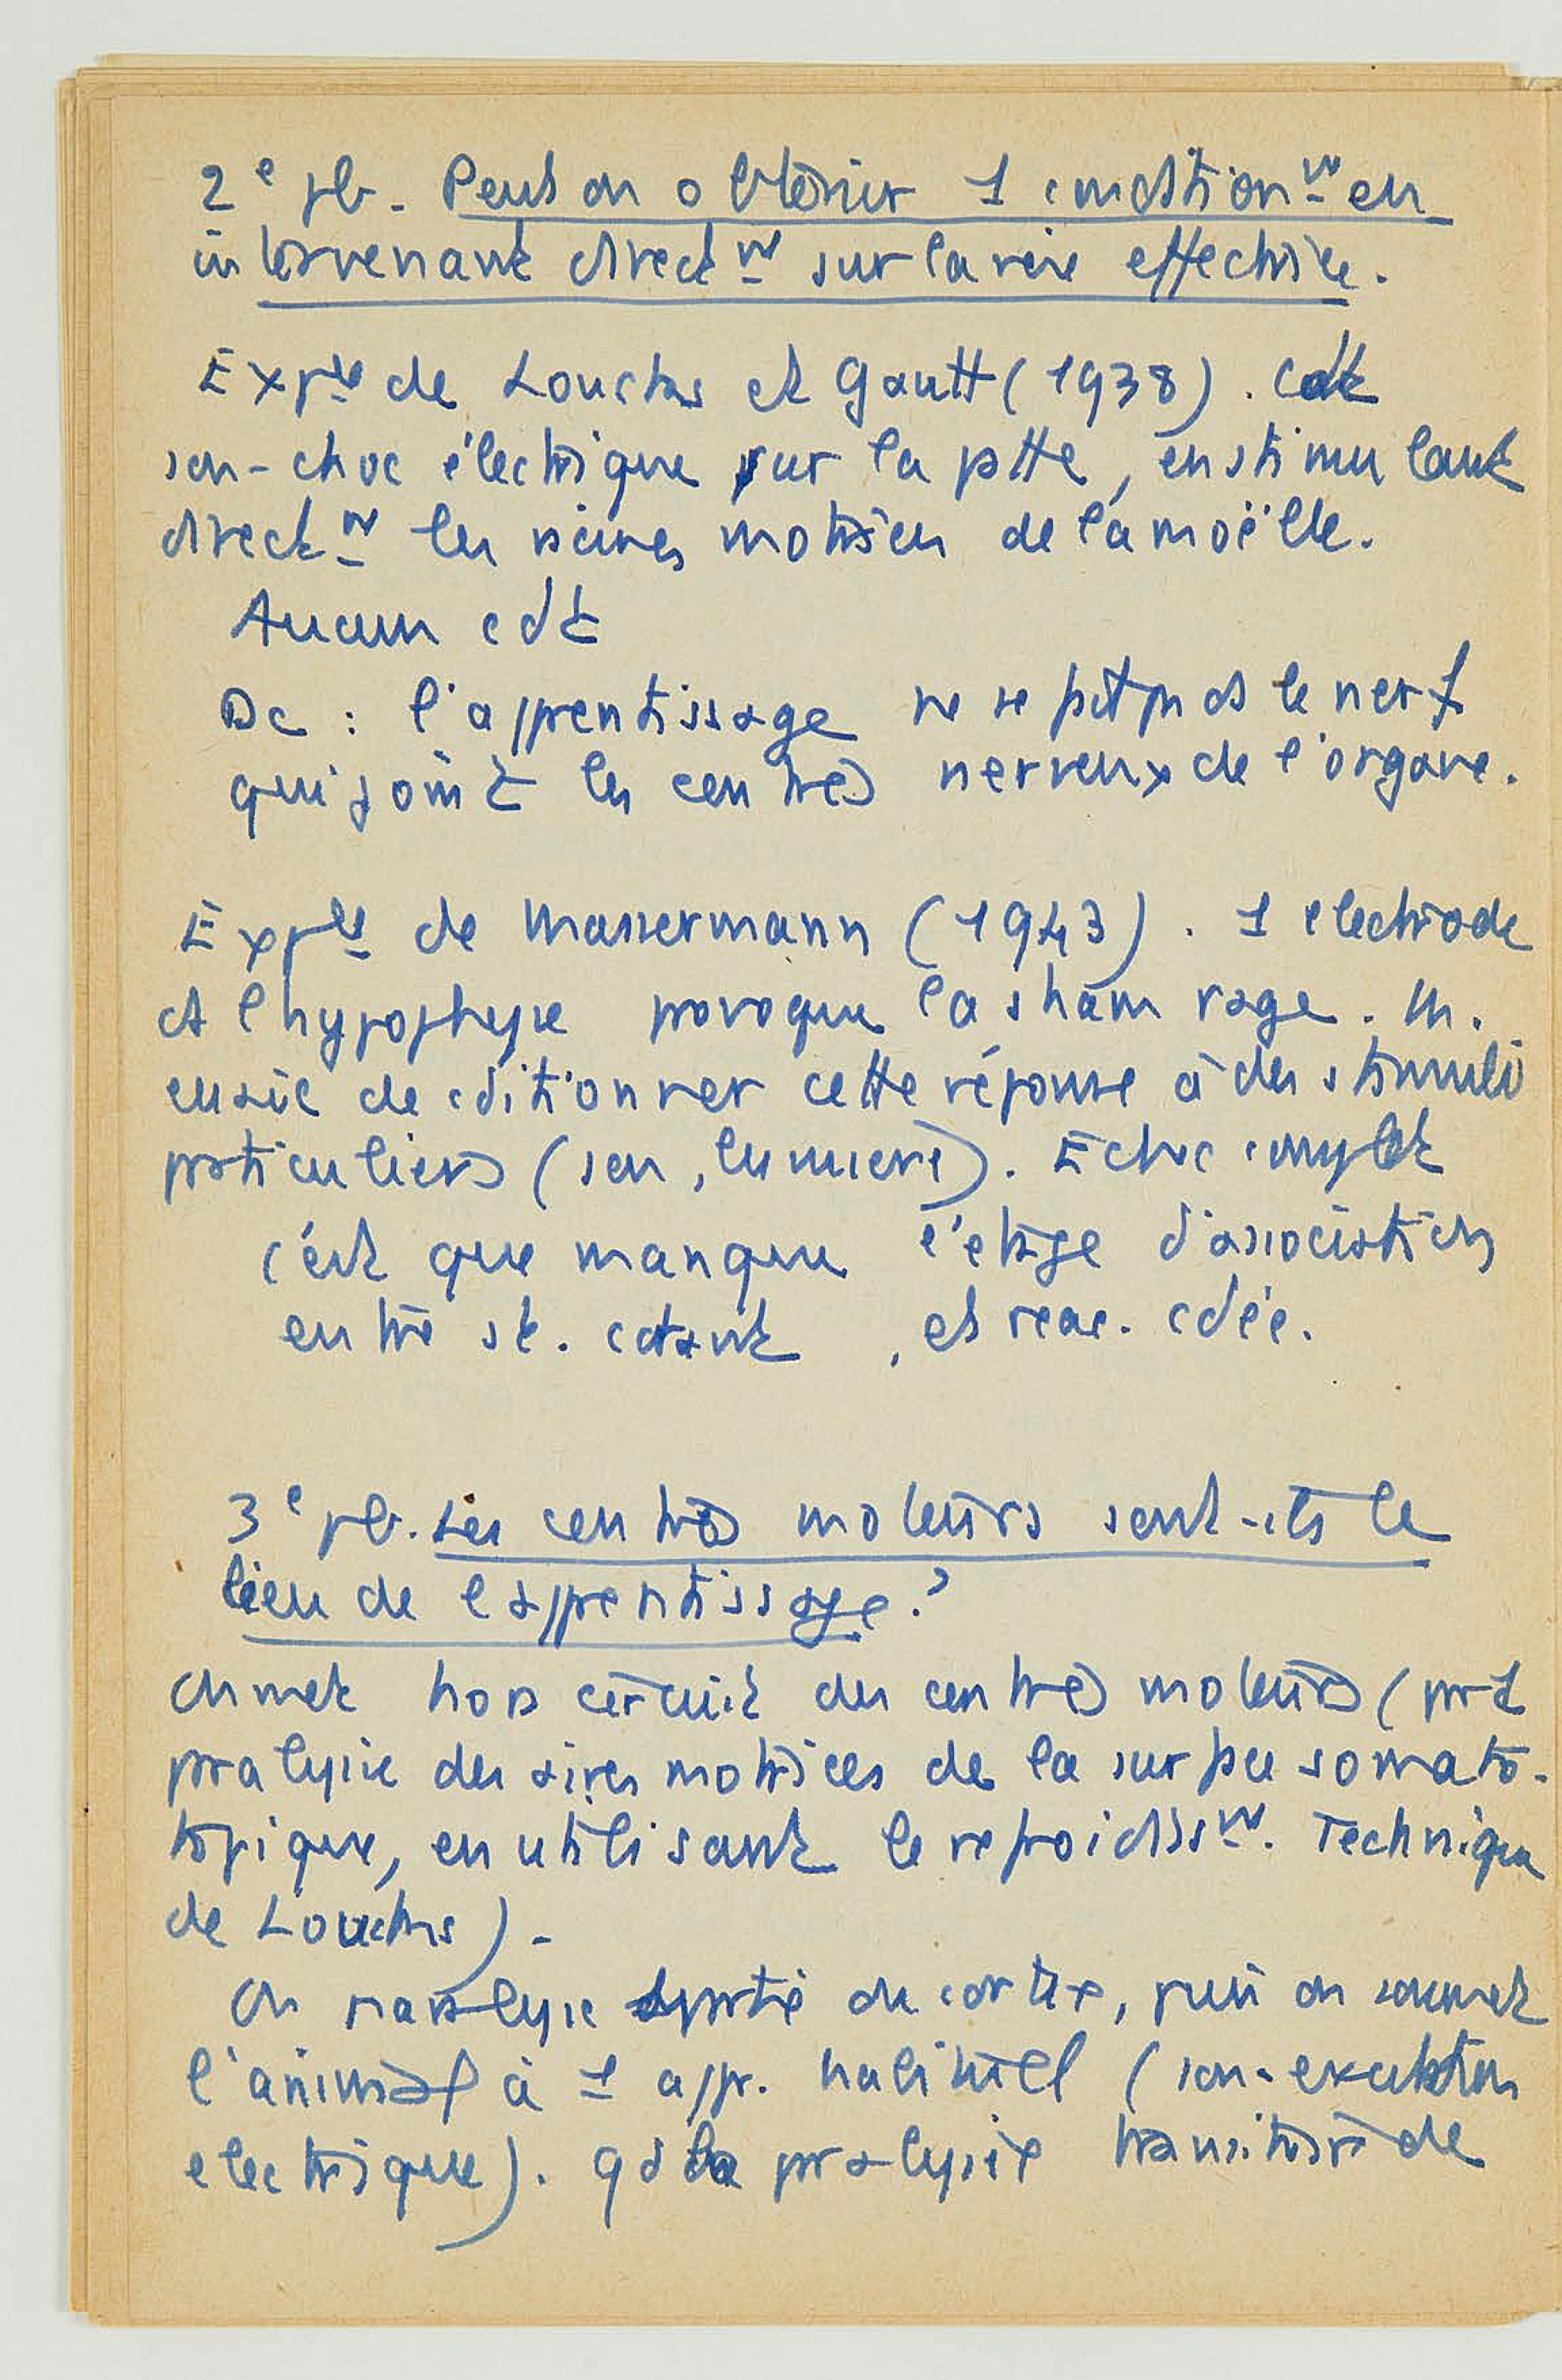 2e pb. Peut on obtenir 1 conditionnt en
intervenant directt sur la voie effectrice.
Expce de Loucks et Gantt (1938). Cdt
son-choc électrique sur la patte, en stimulant
directt les racines motrices de la moëlle.
Aucun cdt
Dc : l'apprentissage ne se fait pas ds le nerf
qui joint les centres nerveux de l'organe.
Expce de Massermann (1943). 1 electrode
ds l'hypophyse provoque la sham rage. M.
essaie de cditionner cette réponse à des stimuli
particuliers (son, lumière). Echec complet
c'est que manque l'etage d'association
entre st. cdtant, et reac. cdée.
3e pb. Les centres moteurs sont-ils le
lieu de l'apprentissage ?
On met hors circuit des centres moteurs (par 1
paralysie des aires motrices de la surface somato-
topique, en utilisant le refroidisst. Technique
de Loucks).
On paralyse partie du cortex, puis on soumet
l'animal à 1 appr. habituel (son-excitation
electrique). Qd la paralysie transitoire de